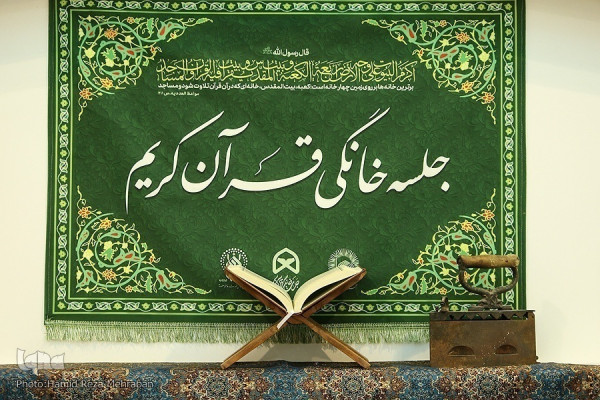 قال رسول الله
اکرم البیوت علی وجه الارض اربعة الکعبة و بیت المقدس و بیت یقرأ فیه القرآن و المساجد
برترین خانه‌ها بر روی زمین چهار خانه است: کعبه، بیت المقدس، خانه‌ای که در آن قرآن تلاوت شود و مساجد
جلسه خانگی قرآن کریم
Photo:Hamid Reza Mehraban